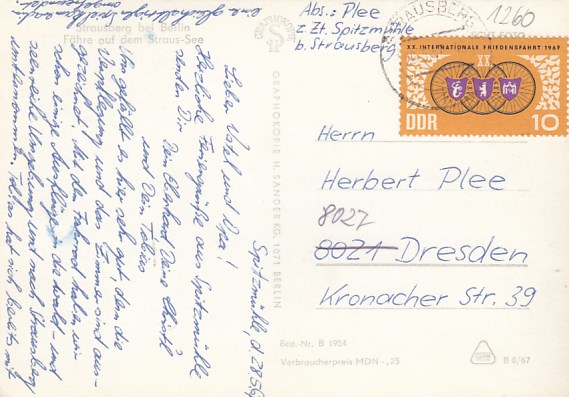 Strausberg bei Berlin
Fähre auf dem Straus-See
Spitzmühle, d.
Liebe Vati und Opa!
Herzliche Feriengrüße aus Spitzmühle
senden Dir
Dein Eberhard Deine Christl
und Dein Tobias
Uns gefällt es hier sehr gut, denn die
Verpflegung und das Zimmer sind aus-
gezeichnet. Mit dem Fahrrad haben wir
schon einige Ausflüge in die wald- und
seenreiche Umgebung und nach Strausberg
unternommen. Tobias hat sich bereits mit
GRAPHOKOPIE H. SANDER KG, 1071 BERLIN
Abs.: Plee
z. Zt. Spitzmühle
b. Strausberg
1260
STRAUSBERG
XX. INTERNATIONALE FRIEDENSFAHRT 1967
XX
DDR 10
Herrn
Herbert Plee
8027
8021 Dresden
Kronacher Str. 39
Best.-Nr. B 1954
Verbraucherpreis MDN -,25
B 8/67